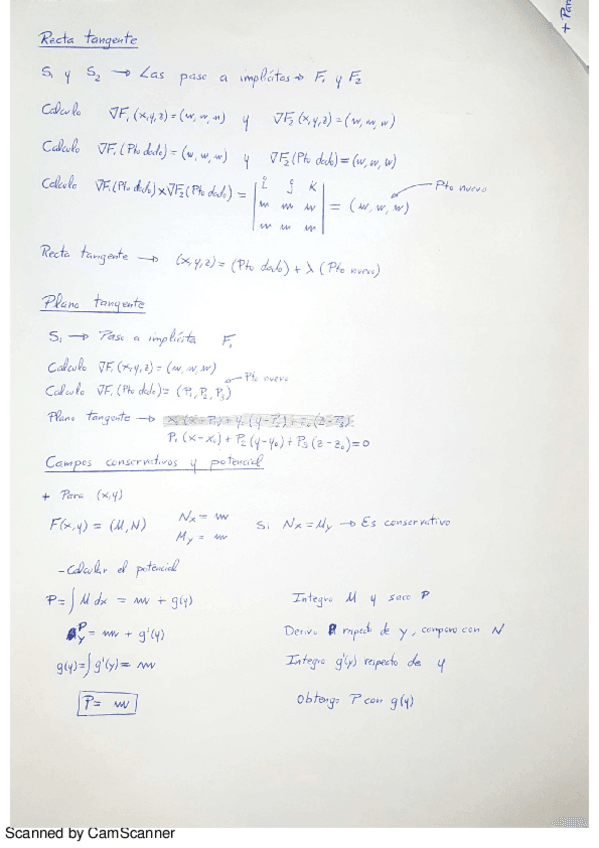 + Para
Recta tangente
S₁ y S₂ → Las paso a implícitas → F₁ y F₂
Calculo ∇F₁(x,y,z)=(w,w,w) y ∇F₂(x,y,z)=(w,w,w)
Calculo ∇F₁(Pto dado)=(w,w,w) y ∇F₂(Pto dado)=(w,w,w)
Calculo ∇F₁(Pto dado)×∇F₂(Pto dado) = | i j k | = (w,w,w) ← Pto nuevo
w w w
w w w
Recta tangente → (x,y,z) = (Pto dado) + λ (Pto nuevo)
Plano tangente
S₁ → Paso a implícita F₁
Calculo ∇F₁(x,y,z)=(w,w,w)
Calculo ∇F₁(Pto dado) = (P₁,P₂,P₃) ← Pto nuevo
Plano tangente →
P₁(x-x₀)+P₂(y-y₀)+P₃(z-z₀)=0
Campos conservativos y potencial
+ Para (x,y)
F(x,y) = (M,N) Nx = w Si Nx = My → Es conservativo
My = w
- Calcular el potencial
P=∫M dx = w + g(y) Integro M y saco P
Py = w + g'(y) Derivo P respecto de y, comparo con N
g(y)=∫g'(y)= w Integro g'(y) respecto de y
P= w Obtengo P con g(y)
Scanned by CamScanner